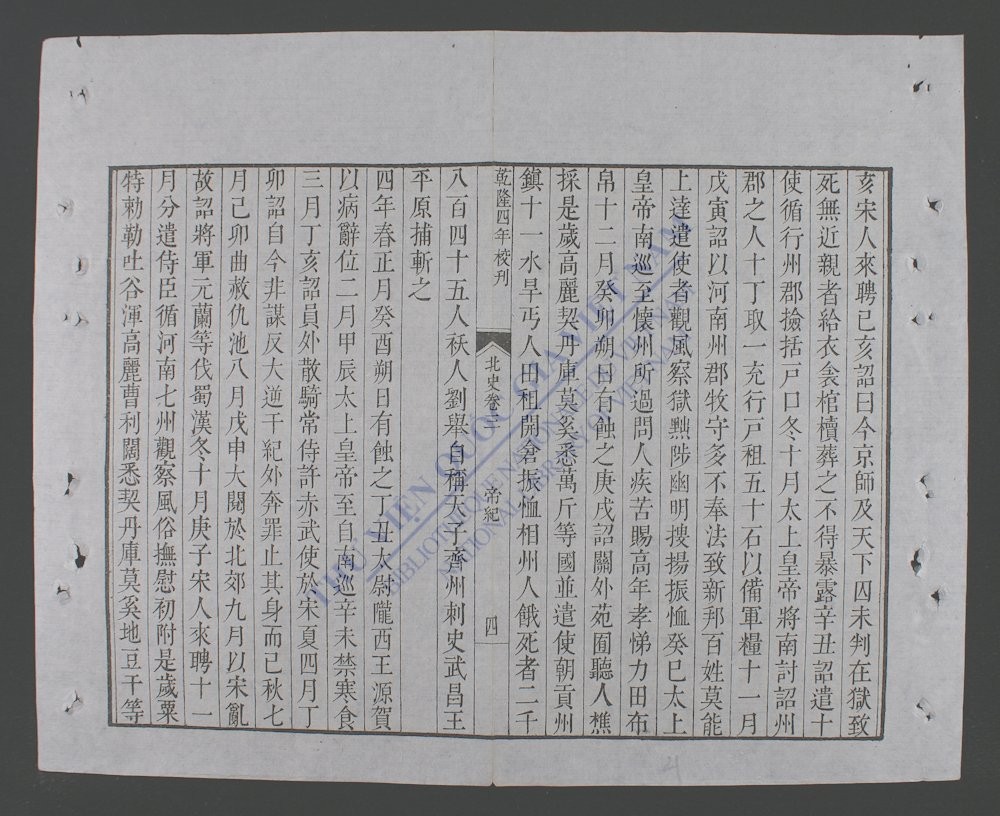 亥宋人來聘己亥詔曰今京師及天下囚未判在獄致
死無近親者給衣衾棺櫝葬之不得暴露辛丑詔遣十
使循行州郡撿括戸口冬十月太上皇帝將南討詔州
郡之人十丁取一充行戸租五十石以備軍糧十一月
戊寅詔以河南州郡牧守多不奉法致新邦百姓莫能
上達遣使者觀風察獄黜陟幽明搜揚振恤癸巳太上
皇帝南巡至懷州所過問人疾苦賜高年孝悌力田布
帛十二月癸卯朔日有蝕之庚戌詔關外苑囿聽人樵
採是歲高麗契丹庫莫奚悉萬斤等國並遣使朝貢州
鎮十一水旱丐人田租開倉振恤相州人餓死者二千
乾隆四年校刊
北史卷三
帝紀
四
八百四十五人祅人劉舉自稱天子齊州刺史武昌王
平原捕斬之
四年春正月癸酉朔日有蝕之丁丑太尉隴西王源賀
以病辭位二月甲辰太上皇帝至自南巡辛未禁寒食
三月丁亥詔員外散騎常侍許赤武使於宋夏四月丁
卯詔自今非謀反大逆干紀外奔罪止其身而已秋七
月己卯曲赦仇池八月戊申大閱於北郊九月以宋亂
故詔將軍元蘭等伐蜀漢冬十月庚子宋人來聘十一
月分遣侍臣循河南七州觀察風俗撫慰初附是歲粟
特勅勒吐谷渾高麗曹利闊悉契丹庫莫奚地豆干等
THƯ VIỆN QUỐC GIA VIỆT NAM
BIBLIOTHEQUE NATIONALE DU VIETNAM
NATIONAL LIBRARY OF VIETNAM
4